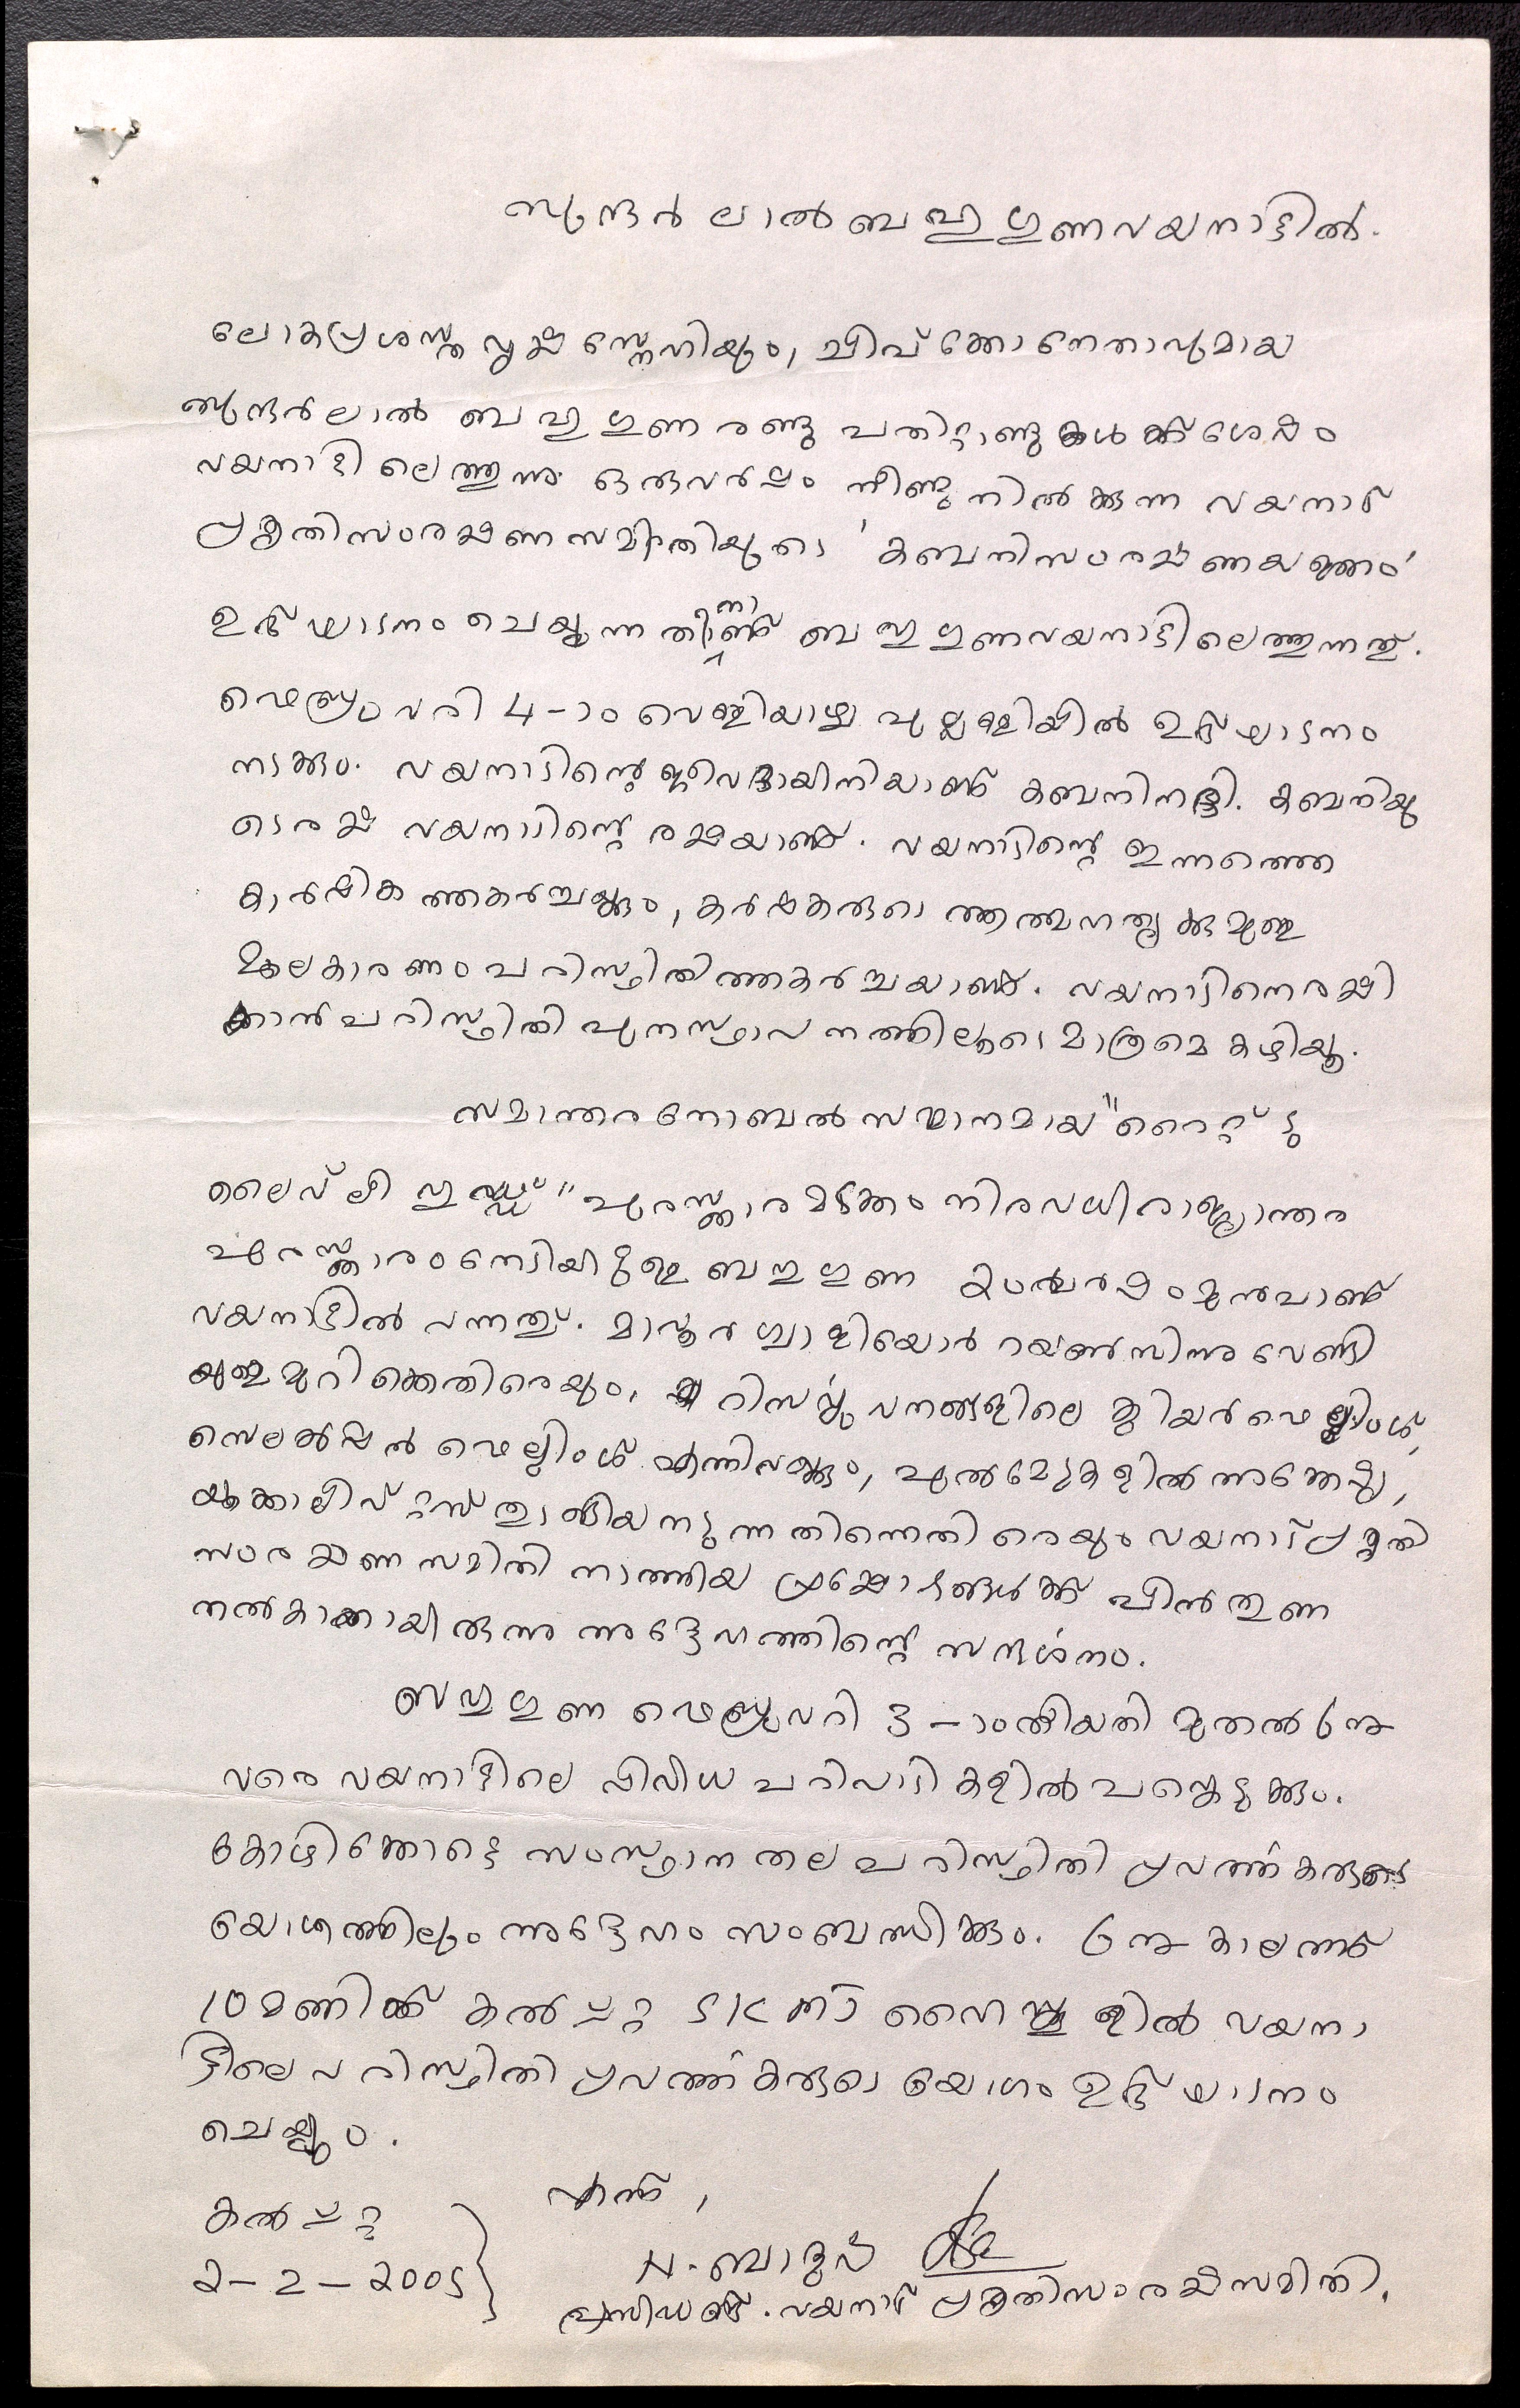 സുന്ദർ ലാൽ ബഹുഗുണ വയനാട്ടിൽ.
ലോകപ്രശസ്ത വൃക്ഷ സ്നേഹിയും, ചിപ് ക്കോ നേതാവുമായ
സുന്ദർലാൽ ബഹുഗുണ രണ്ടു പതിറ്റാണ്ടുകൾക്ക് ശേഷം
വയനാട്ടിലെത്തുന്നു. ഒരുവർഷം നീണ്ടുനിൽക്കുന്ന വയനാട്
പ്രകൃതിസംരക്ഷണസമിതിയുടെ 'കബനിസംരക്ഷണയജ്ഞം'
ഉദ്ഘാടനം ചെയ്യുന്നതിനാണ് ബഹുഗുണ വയനാട്ടിലെത്തുന്നത്.
ഫെബ്രുവരി 4-ാം വെള്ളിയാഴ്ച പുല്പള്ളിയിൽ ഉദ്ഘാടനം
നടക്കും. വയനാടിന്റെ ജീവദായിനിയാണ് കബനിനദി. കബനിയു
ടെ രക്ഷ വയനാടിന്റെ രക്ഷയാണ്. വയനാടിന്റെ ഇന്നത്തെ
കാർഷിക തകർച്ചക്കും, കർഷകരുടെ ആത്മഹത്യക്കുമുള്ള
മൂലകാരണം പരിസ്ഥിതിത്തകർച്ചയാണ്. വയനാടിനെ രക്ഷി
ക്കാൻ പരിസ്ഥിതി പുനസ്ഥാപനത്തിലൂടെ മാത്രമെ കഴിയൂ.
സമാന്തര നോബൽ സമ്മാനമായ "റൈറ്റ് ടു
ലൈവ് ലി ഹുഡ്ഡ്" പുരസ്ക്കാരമടക്കം നിരവധി രാജ്യാന്തര
പുരസ്ക്കാരം നേടിയിട്ടുള്ള ബഹുഗുണ 20 വർഷം മുൻപാണ്
വയനാട്ടിൽ വന്നത്. മാവൂർ ഗ്വാളിയോർ റയൺസിനു വേണ്ടി
മുളമുറിക്കെതിരെയും, റിസർവ്വ് വനങ്ങളിലെ ക്ലിയർഫെല്ലിംഗ്,
സെലക്ഷൻ ഫെല്ലിംഗ് എന്നിവക്കും, പുൽമേടുകളിൽ അക്കേഷ്യ,
യൂക്കാലിപ്റ്റസ് തുടങ്ങിയ നടുന്നതിന്നെതിരെയും വയനാട് പ്രകൃതി
സംരക്ഷണ സമിതി നടത്തിയ പ്രക്ഷോഭങ്ങൾക്ക് പിൻതുണ
നൽകാനായിരുന്നു അദ്ദേഹത്തിന്റെ സന്ദർശനം.
ബഹുഗുണ ഫെബ്രുവരി 3-ാം തിയതി മുതൽ 6 നു
വരെ വയനാട്ടിലെ വിവിധ പരിപാടികളിൽ പങ്കെടുക്കും.
കോഴിക്കോട്ടെ സംസ്ഥാന തല പരിസ്ഥിതി പ്രവർത്തകരുടെ
യോഗത്തിലും അദ്ദേഹം സംബന്ധിക്കും. 6 നു കാലത്ത്
10 മണിക്ക് കൽപ്പറ്റ SKMJ ഹൈസ്കൂളിൽ വയനാ
ട്ടിലെ പരിസ്ഥിതി പ്രവർത്തകരുടെ യോഗം ഉദ്ഘാടനം
ചെയ്യും.
എന്ന്,
കൽപ്പറ്റ
2-2-2005
N. ബാദുഷ
പ്രസിഡണ്ട്. വയനാട് പ്രകൃതിസംരക്ഷണസമിതി.